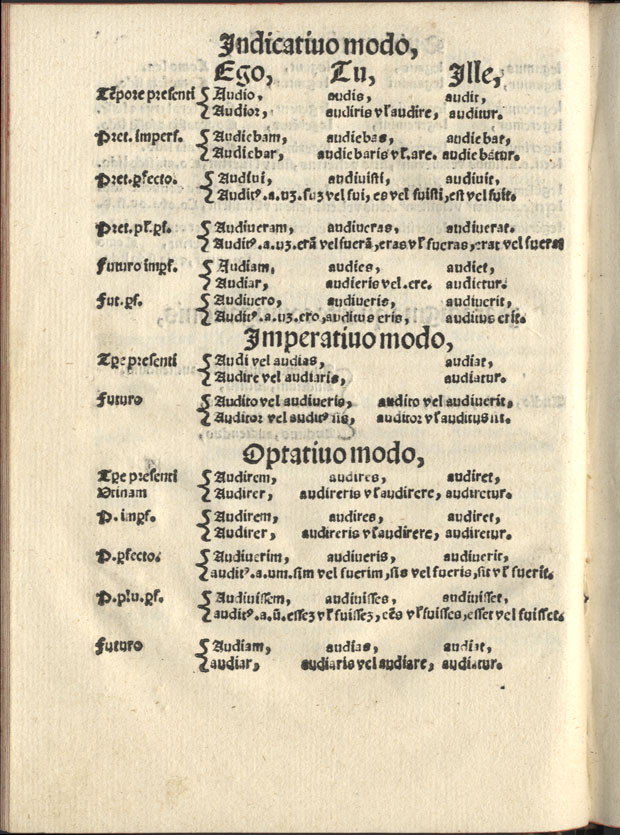 Indicatiuo modo,
Ego, Tu, Ille,
Tẽpore presenti Audio, audis, audit,
Audior, audiris vľ audire, auditur.
Pret. imperf. Audiebam, audiebas, audiebat,
Audiebar, audiebaris vľ.are. audiebatur.
Pret.ꝑfecto. Audiui, audiuisti, audiuit,
Auditꝰ.a.uʒ.suʒ vel fui, es vel fuisti, est vel fuit.
Pret.pľ.ꝑf. Audiueram, audiueras, audiuerat.
Auditꝰ.a.uʒ.erã vel fuerã, eras vľ fueras, erat vel fuerat
Futuro impf. Audiam, audies, audiet,
Audiar, audieris vel.ere. audietur.
Fut.ꝑf. Audiuero, audiueris, audiuerit,
Auditꝰ.a.uʒ.ero, auditus eris, auditus erit.
Imperatiuo modo,
Tꝑe presenti Audi vel audias, audiat,
Audire vel audiaris, audiatur.
Futuro Audito vel audiueris, audito vel audiuerit.
Auditor vel auditꝰ sis, auditor vľ auditus sit.
Optatiuo modo,
Tꝑe presenti Audirem, audires, audiret,
Utinam Audirer, audireris vľ audirere, audiretur.
P. impf. Audirem, audires, audiret,
Audirer, audireris vľ audirere, audiretur.
P.ꝑfecto. Audiuerim, audiueris, audiuerit,
auditꝰ.a.um.sim vel fuerim, sis vel fueris, sit vľ fuerit.
P.plu.ꝑf. Audiuissem, audiuisses, audiuisset,
auditꝰ.a.ũ.esseʒ vľ fuisseʒ, eẽs vľ fuisses, esset vel fuisset.
Futuro Audiam, audias, audiat,
audiar, audiaris vel audiare, audiatur.